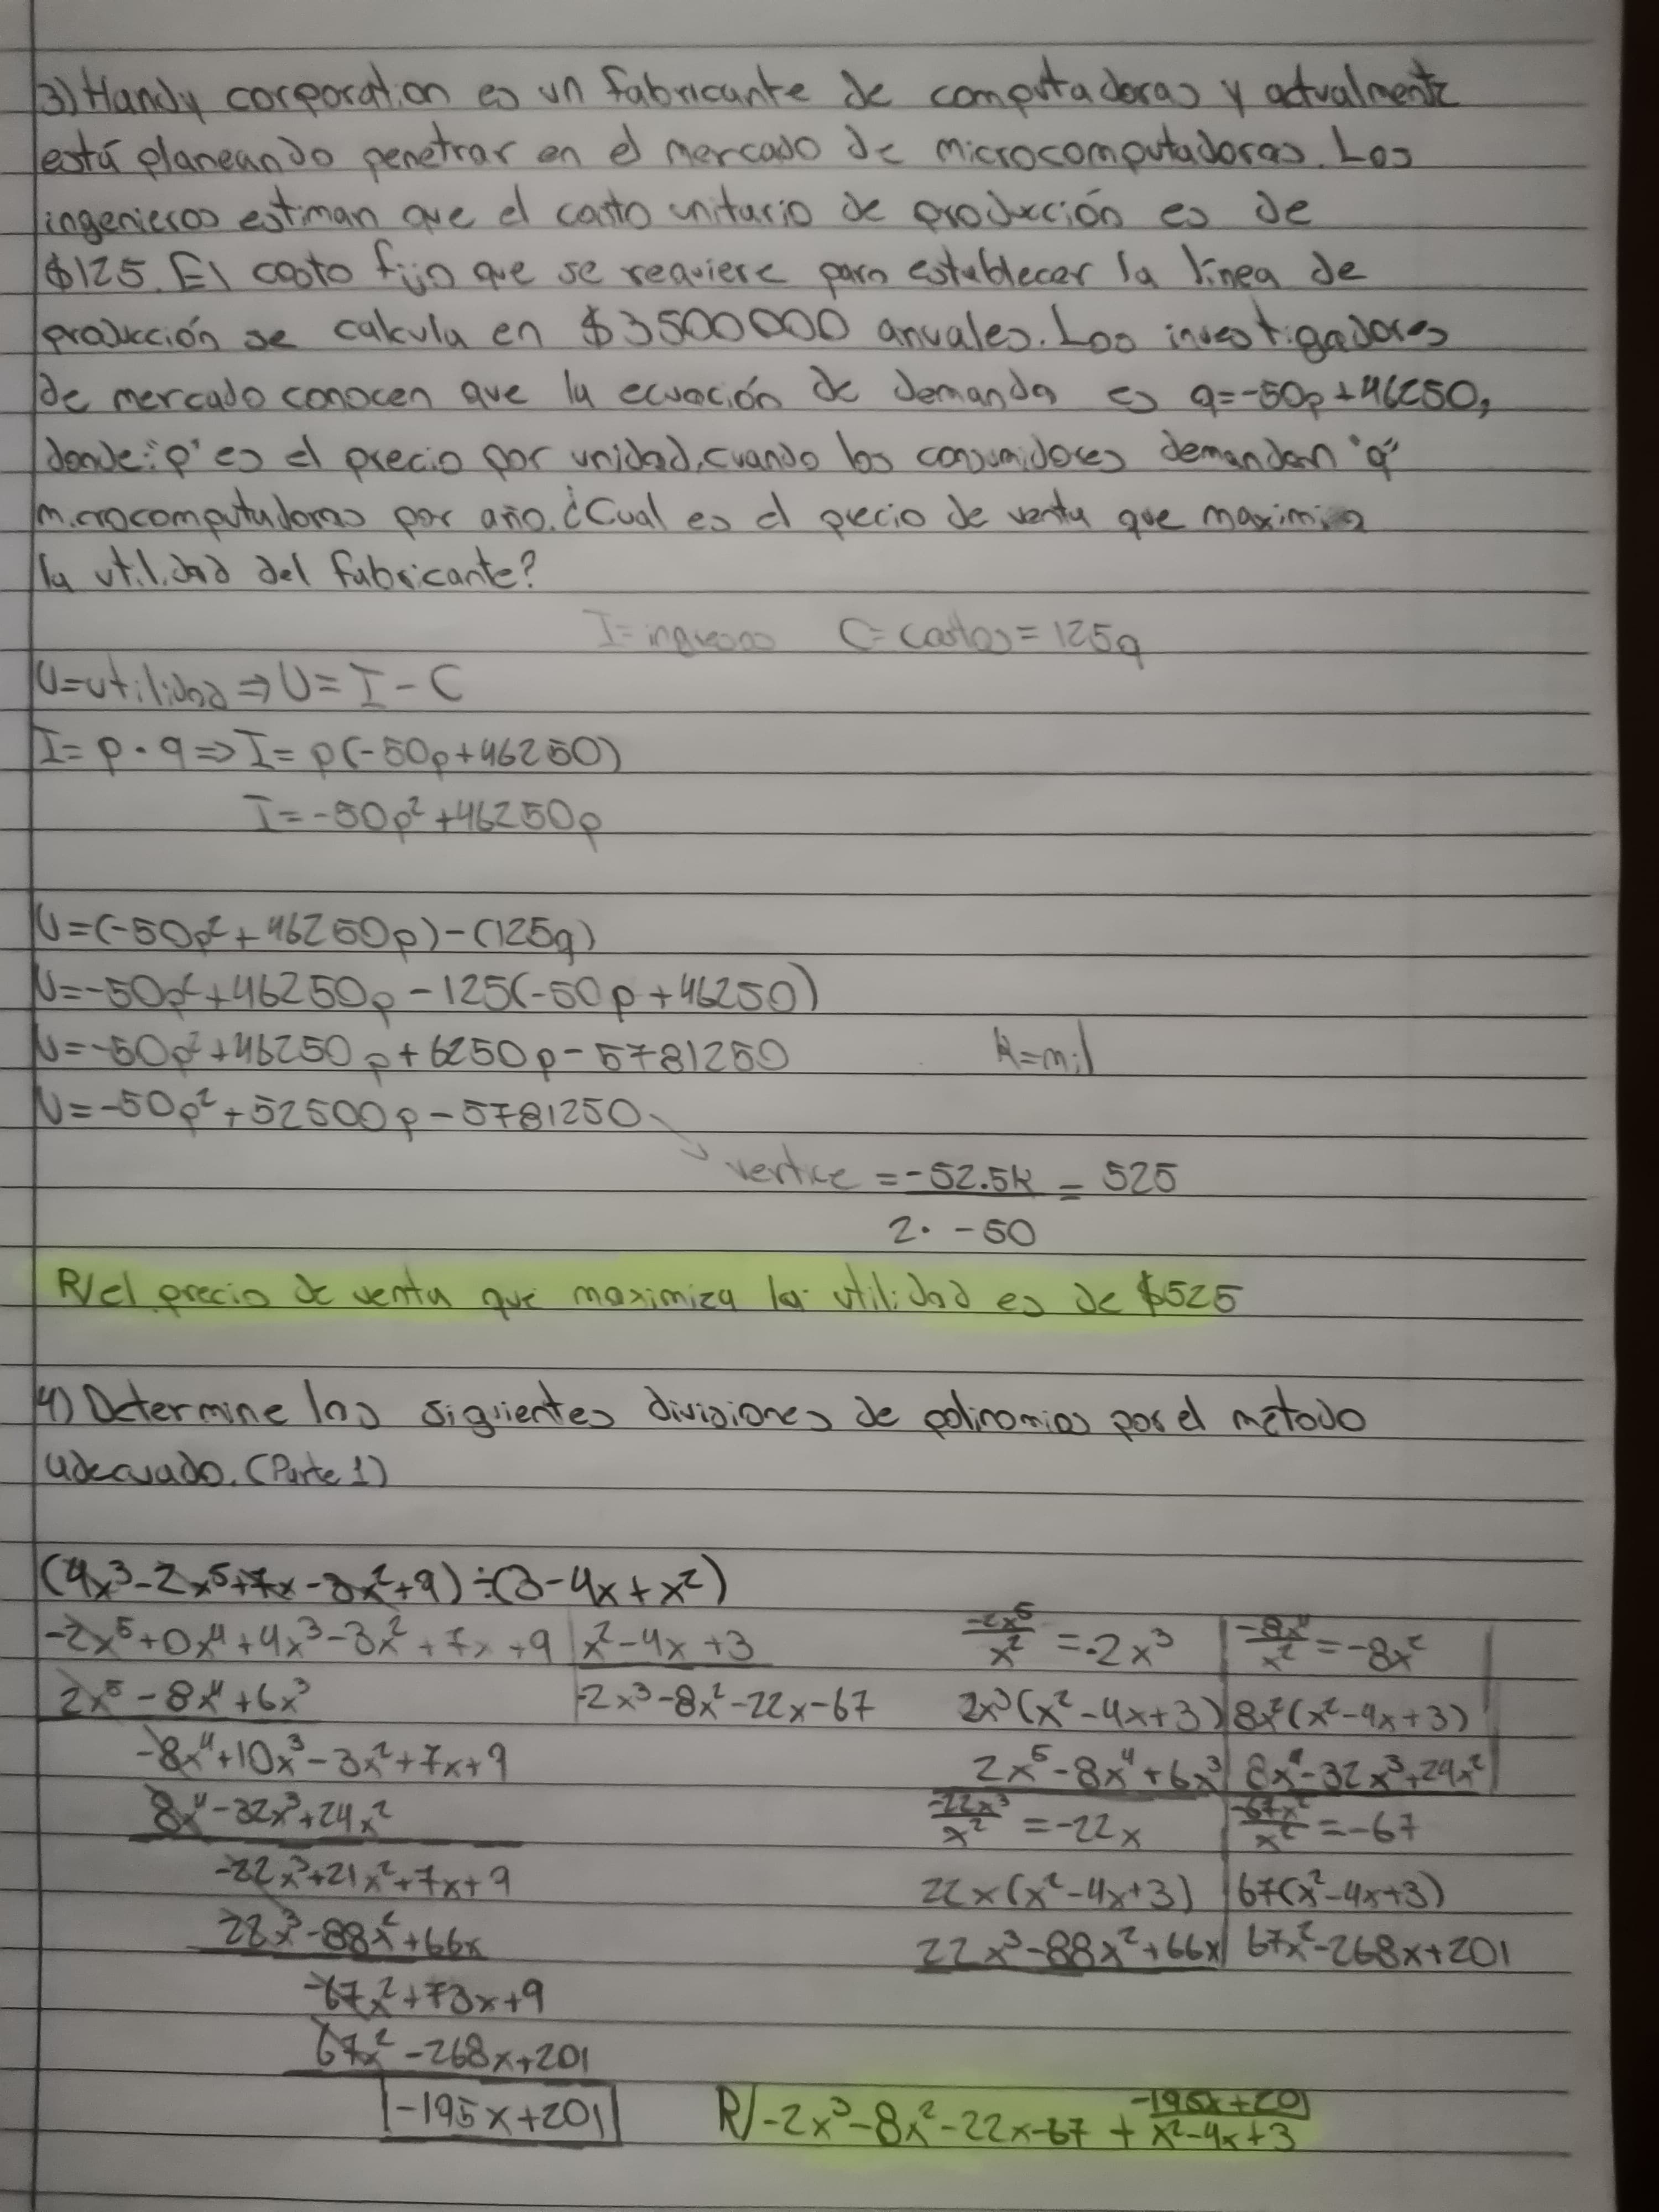 3) Handy corporation es un fabricante de computadoras y actualmente
está planeando penetrar en el mercado de microcomputadoras. Los
ingenieros estiman que el costo unitario de producción es de
$125. El costo fijo que se requiere para establecer la línea de
producción se calcula en $3500000 anuales. Los investigadores
de mercado conocen que la ecuación de demanda es q=-50p+46250,
donde: "p" es el precio por unidad, cuando los consumidores demandan "q"
microcomputadoras por año. ¿Cual es el precio de venta que maximiza
la utilidad del fabricante?
I=ingresos C=costos=125q
U=utilidad⇒U=I-C
I=p·q⇒I=p(-50p+46250)
I=-50p²+46250p
U=(-50p²+46250p)-(125q)
U=-50p²+46250p-125(-50p+46250)
U=-50p²+46250p+6250p-5781250 k=mil
U=-50p²+52500p-5781250
vertice = -52.5k = 525
2·-50
R/el precio de venta que maximiza la utilidad es de $525
4) Determine las siguientes divisiones de polinomios por el método
adecuado. (Parte 1)
(4x³-2x⁵+7x-3x²+9)÷(3-4x+x²)
-2x⁵+0x⁴+4x³-3x²+7x+9 | x²-4x+3 -2x⁵/x²=-2x³ | -8x⁴/x²=-8x²
2x⁵-8x⁴+6x³ -2x³-8x²-22x-67 2x³(x²-4x+3) | 8x²(x²-4x+3)
-8x⁴+10x³-3x²+7x+9 2x⁵-8x⁴+6x³ | 8x⁴-32x³+24x²
8x⁴-32x³+24x² -22x³/x²=-22x | -67x²/x²=-67
-22x³+21x²+7x+9 22x(x²-4x+3) | 67(x²-4x+3)
22x³-88x²+66x 22x³-88x²+66x | 67x²-268x+201
-67x²+73x+9
67x²-268x+201
-195x+201 R/-2x³-8x²-22x-67 + -195x+201/x²-4x+3